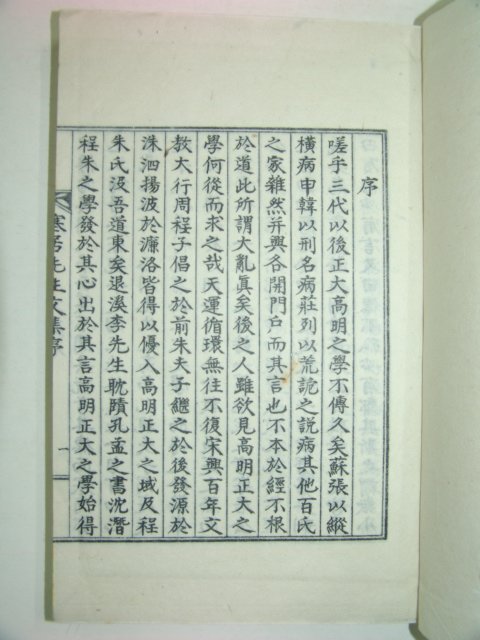 序
嗟乎三代以後正大高明之學不傳久矣蘇張以縱
橫病申韓以刑名病莊列以荒詭之說病其他百氏
之家雜然并興各開門戶而其言也不本於經不根
於道此所謂大亂眞矣後之人雖欲見高明正大之
學何從而求之哉天運循環無往不復宋興百年文
教大行周程子倡之於前朱夫子繼之於後發源於
洙泗揚波於濂洛皆得以優入高明正大之域及程
朱氏沒吾道東矣退溪李先生耽賾孔孟之書沈潛
程朱之學發於其心出於其言高明正大之學始得
寒居先生文集序
一